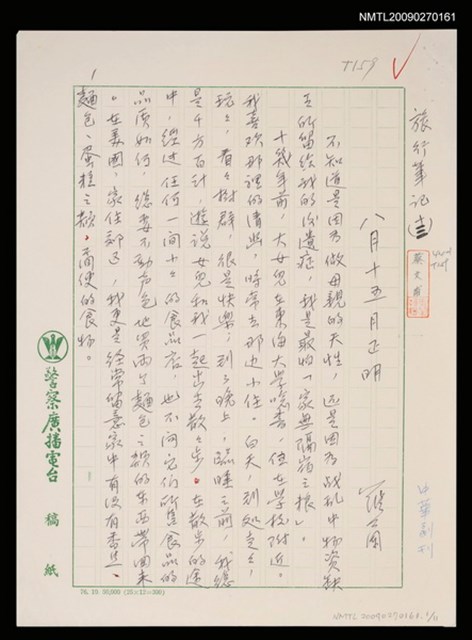 NMTL20090270161
T159
1
旅行筆記(三)
八月十五月正明
羅蘭
蔡文甫
中華副刊
不知道是因為做母親的天性,還是因為戰亂中物資缺
乏所留給我的後遺症,我是最怕「家無隔宿之糧」。
十幾年前,大女兒在東海大學唸書,住在學校附近。
我喜歡那裡的清幽,時常去那邊小住。白天,到處走走,
玩玩,看看樹群,很是快樂;到了晚上,臨睡之前,我總
是千方百計,遊說女兒和我一起出去散散步。在散步的途
中,經過任何一間小小的食品店,也不問它們所售食品的
品質如何,總要不動声色地買兩個麵包之類的東西帶回來
。在美國,家住郊區,我更是經常留意家中有沒有香蕉、
麵包、蛋糕之類,簡便的食物。
警察廣播電台 稿紙
76. 10. 30,000 (25×12=300)
NMTL20090270161 1/11